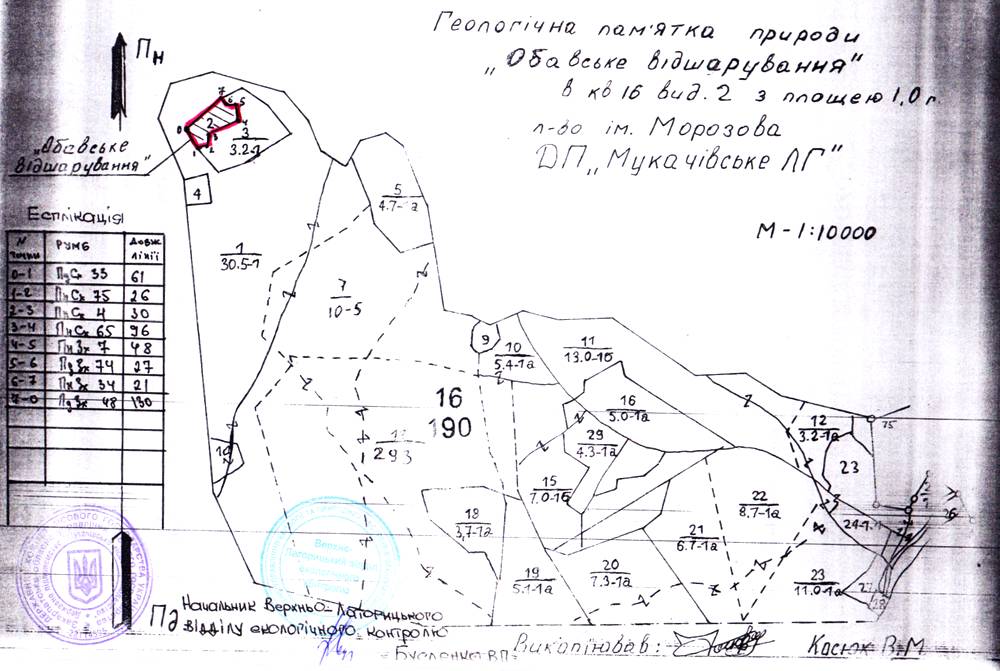 Геологічна пам'ятка природи
„Обавське відшарування"
в кв 16 вид. 2 з площею 1,0 г
л-во ім. Морозова
ДП „Мукачівське ЛГ"
М-1:10000
Пн
„Обавське
відшарування"
Есплікація
N точки РУМБ Довж лінії
0-1 ПдСх 33 61
1-2 ПнСх 75 26
2-3 ПнСх 4 30
3-4 ПнСх 65 96
4-5 ПнЗх 7 48
5-6 ПдЗх 74 27
6-7 ПнЗх 34 21
7-0 ПдЗх 48 130
0
1
2
3
4
5
6
7
2
3
3.2-1
4
5
4.7-1а
1
30.5-1
7
10-5
9
10
5.4-1а
11
13.0-1б
16
5.0-1а
29
4.3-1а
12
3.2-1а
75
23
16
190
293
15
7.0-1б
18
3,7-1а
22
8.7-1а
21
6.7-1а
20
7.3-1а
19
5.1-1а
23
11.0-1а
26
Пд
Начальник Верхньо-Латорицького
відділу екологічного контролю
Верхньо-
Латорицький
Викопіював:
Косюк В.М